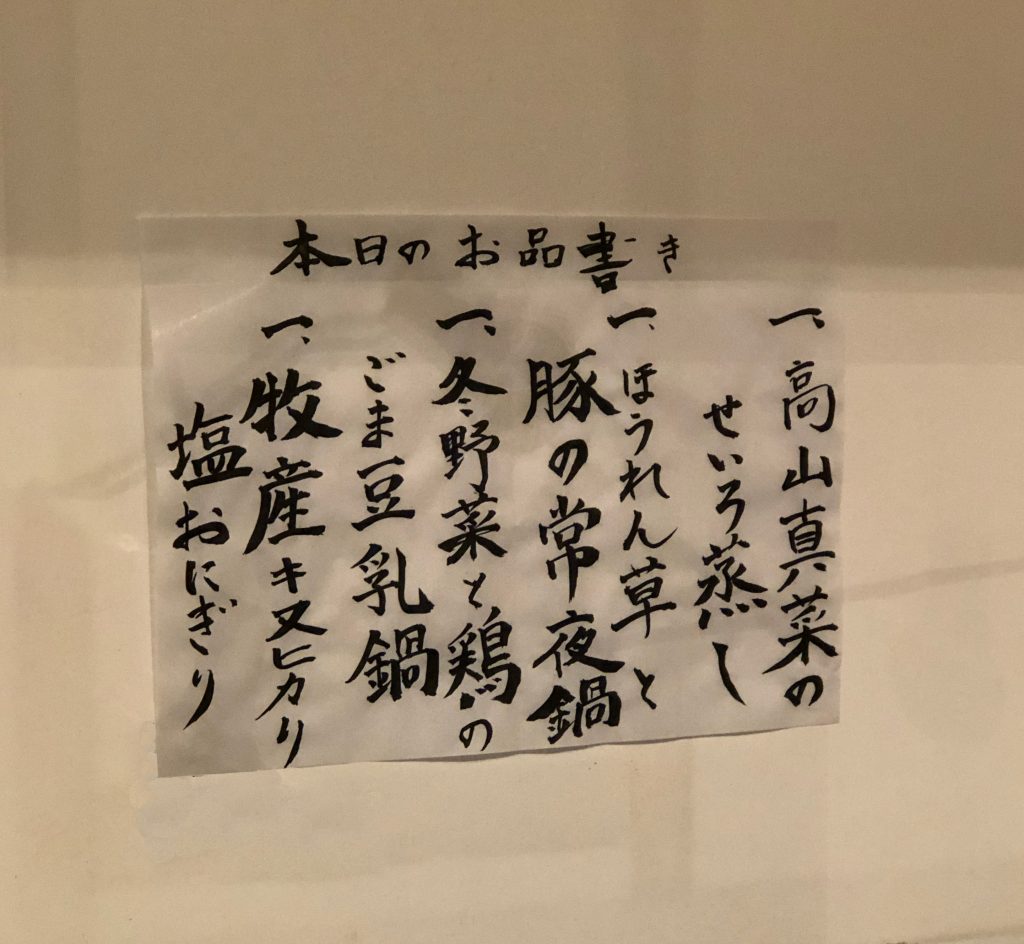 本日のお品書き
一、高山真菜の
せいろ蒸し
一、ほうれん草と
豚の常夜鍋
一、冬野菜と鶏の
ごま豆乳鍋
一、牧産キヌヒカリ
塩おにぎり